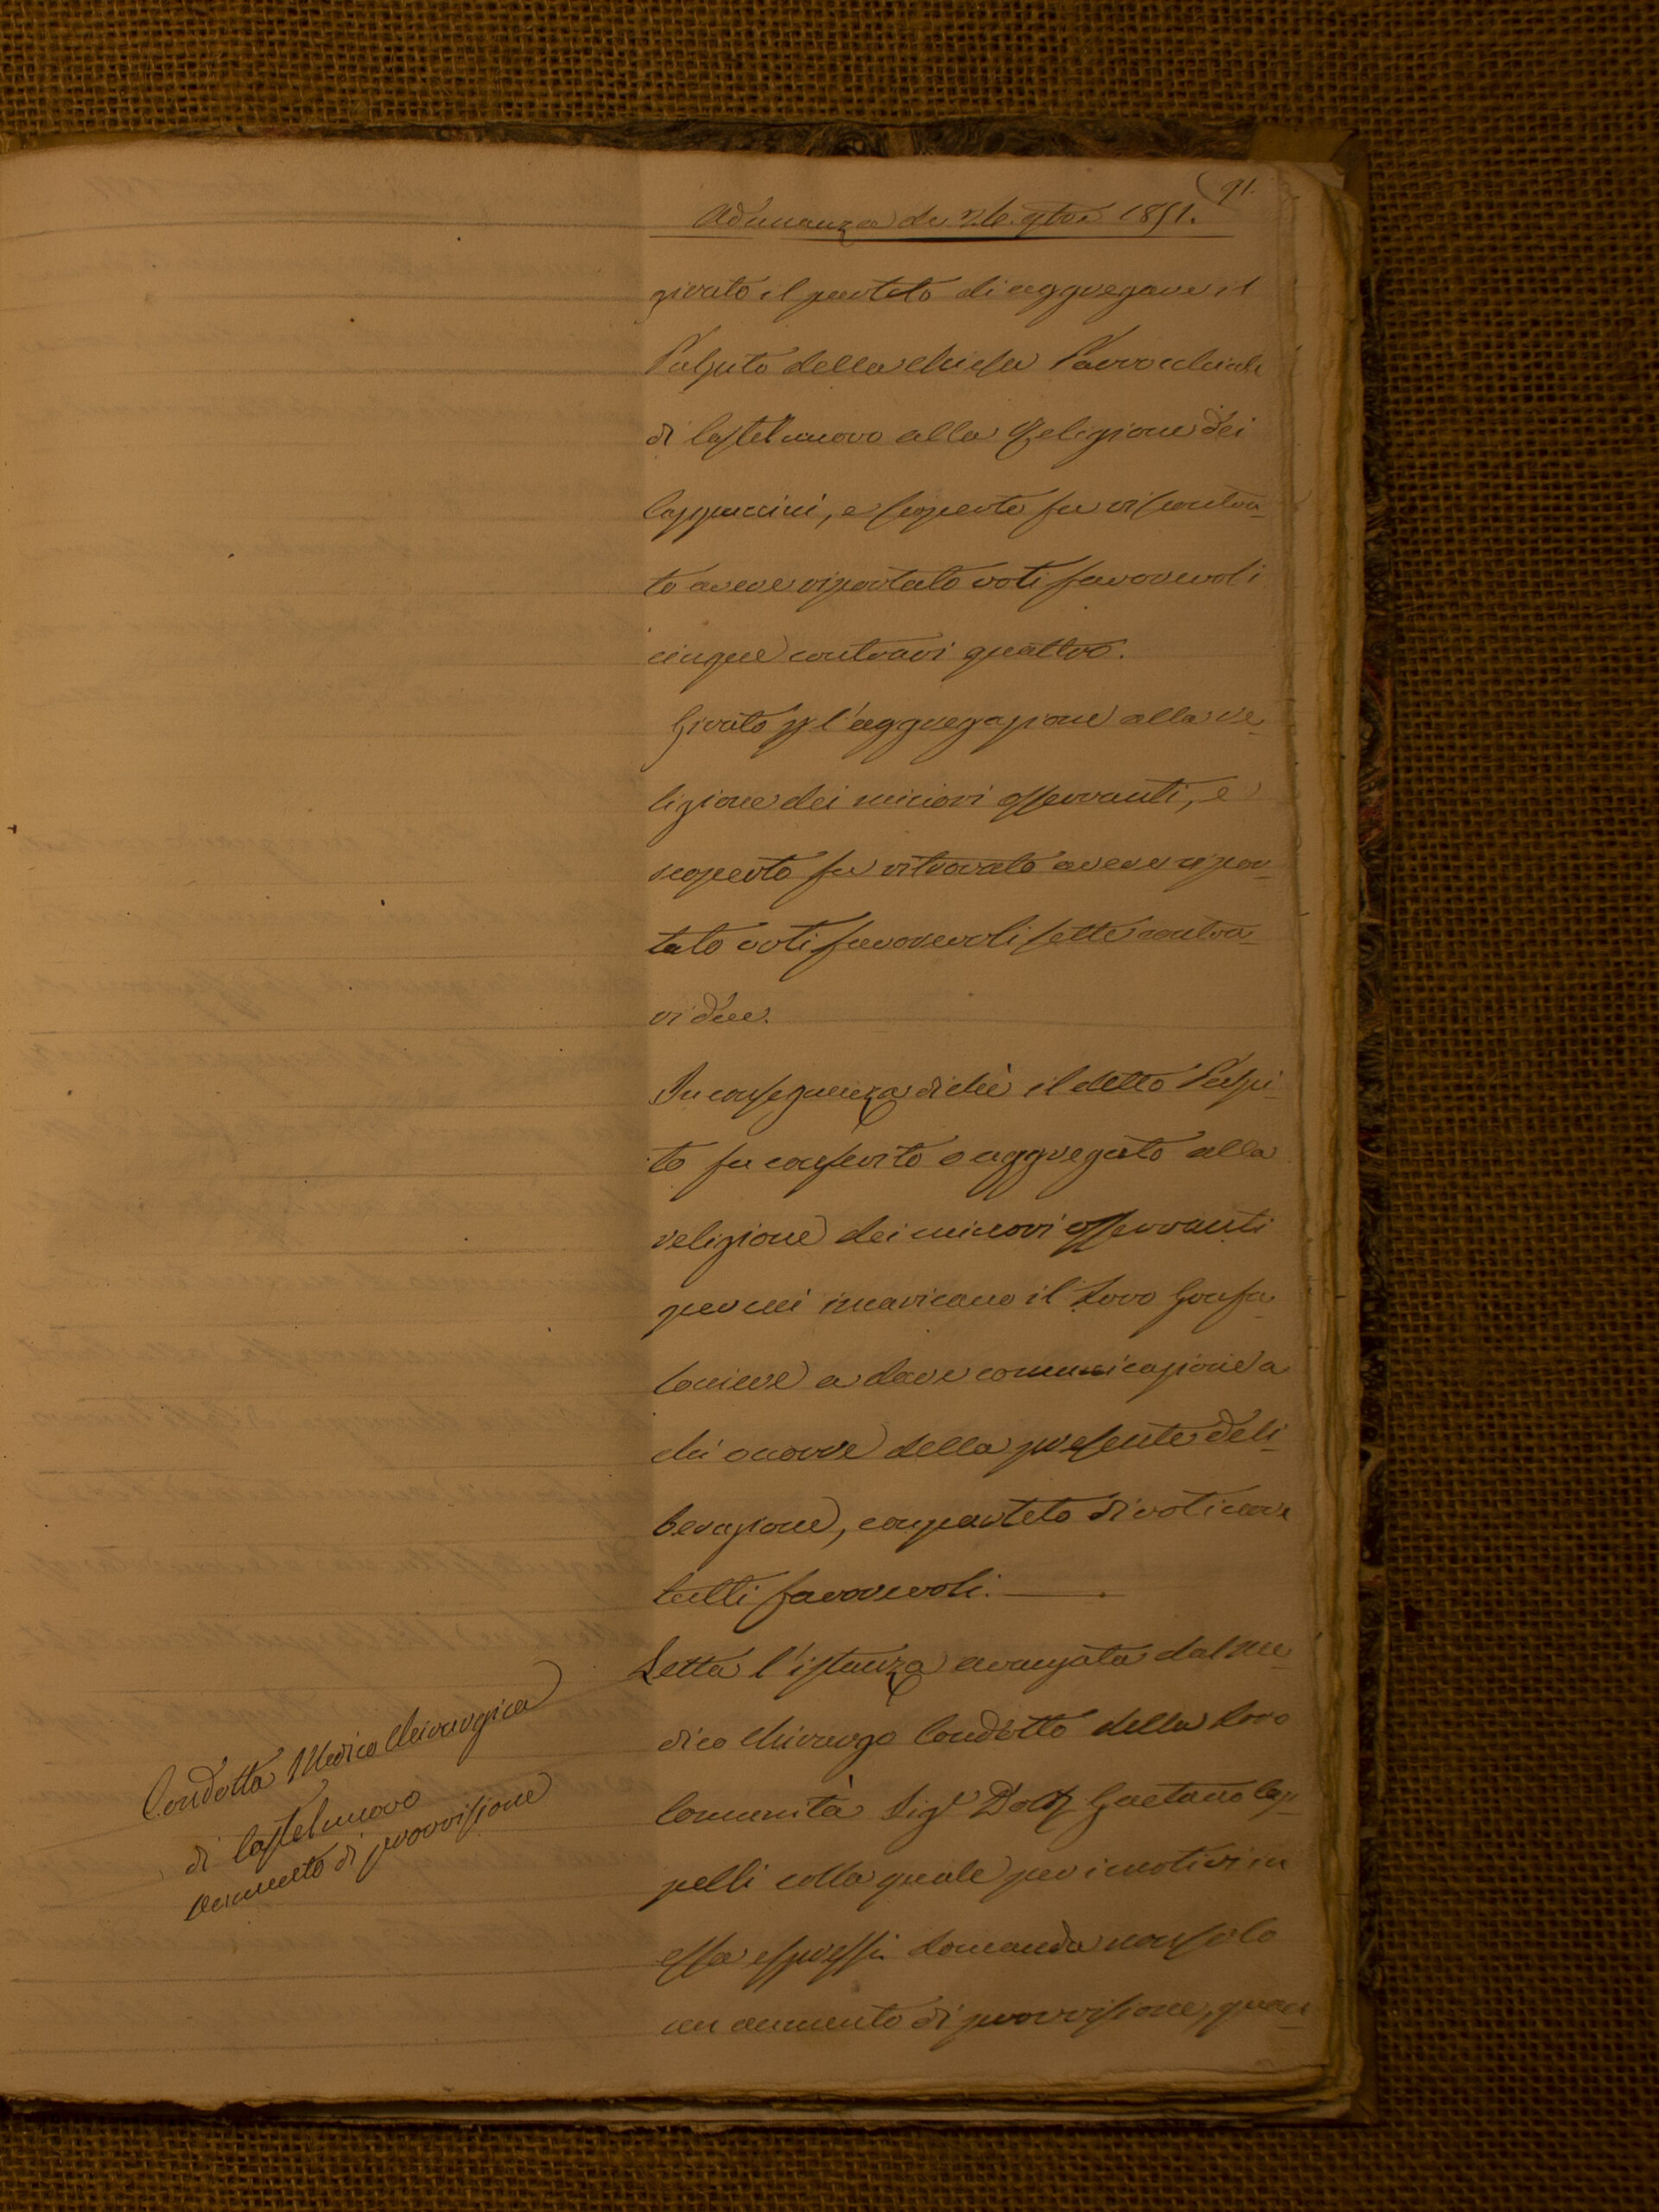 91.
Adunanza de 26. 9bre 1851.
girato il partito di aggregare il
Pulpito della Chiesa Parrocchiale
di Castelnuovo alla Religione dei
Cappuccini, e scoperto fu riscontra-
to avere riportato voti favorevoli
cinque contrari quattro.
Girato p l'aggregazione alla re-
ligione dei minori osservanti, e
scoperto fu ritrovato avere ripor-
tato voti favorevoli sette contra-
ri due.
In conseguenza di che il detto Pulpi-
to fu conferito o aggregato alla
religione dei minori osservanti
per cui incaricano il Loro Gonfa-
loniere a dare comunicazione a
chi occorre della presente deli-
berazione, con partito di voti nove
tutti favorevoli.
Letta l'istanza avanzata dal Me-
dico Chirurgo Condotto della Loro
Comunità Sigr Dott Gaetano Cap-
pelli colla quale per i motivi in
essa espressi domanda non solo
un aumento di provvisione, quan-
Condotta Medico Chirurgica
di Castelnuovo
aumento di provvisione